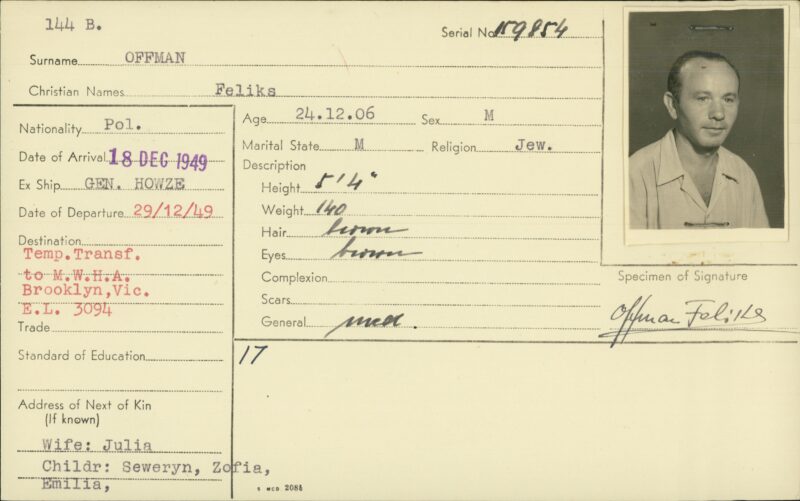 144 B.
Serial No 159854
Surname OFFMAN
Christian Names Feliks
Nationality Pol.
Date of Arrival 18 DEC 1949
Ex Ship GEN. HOWZE
Date of Departure 29/12/49
Destination
Temp.Transf.
to M.W.H.A.
Brooklyn,Vic.
E.L. 3094
Trade
Standard of Education
Address of Next of Kin
(If known)
Wife: Julia
Childr: Seweryn, Zofia,
Emilia,
Age 24.12.06 Sex M
Marital State M Religion Jew.
Description
Height 5'4"
Weight 140
Hair brown
Eyes brown
Complexion
Scars
General med.
17
Specimen of Signature
Offman Feliks